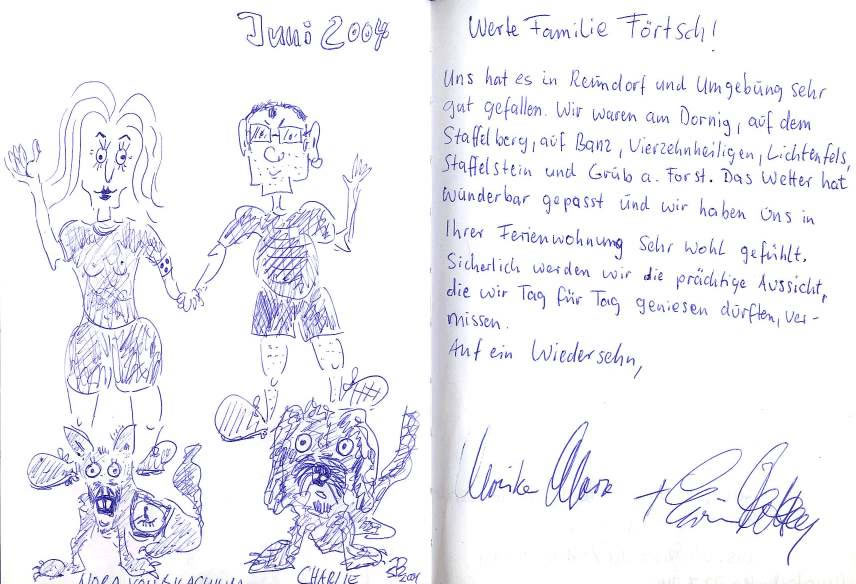 Juni 2004
Werte Familie Förtsch!
Uns hat es in Reundorf und Umgebung sehr
gut gefallen. Wir waren am Dornig, auf dem
Staffelberg, auf Banz, Vierzehnheiligen, Lichtenfels,
Staffelstein und Grub a. Forst. Das Wetter hat
wunderbar gepasst und wir haben uns in
Ihrer Ferienwohnung sehr wohl gefühlt.
Sicherlich werden wir die prächtige Aussicht,
die wir Tag für Tag geniesen dürften, ver-
missen.
Auf ein Wiedersehn,
NORA VON
CHARLIE
SB
2004